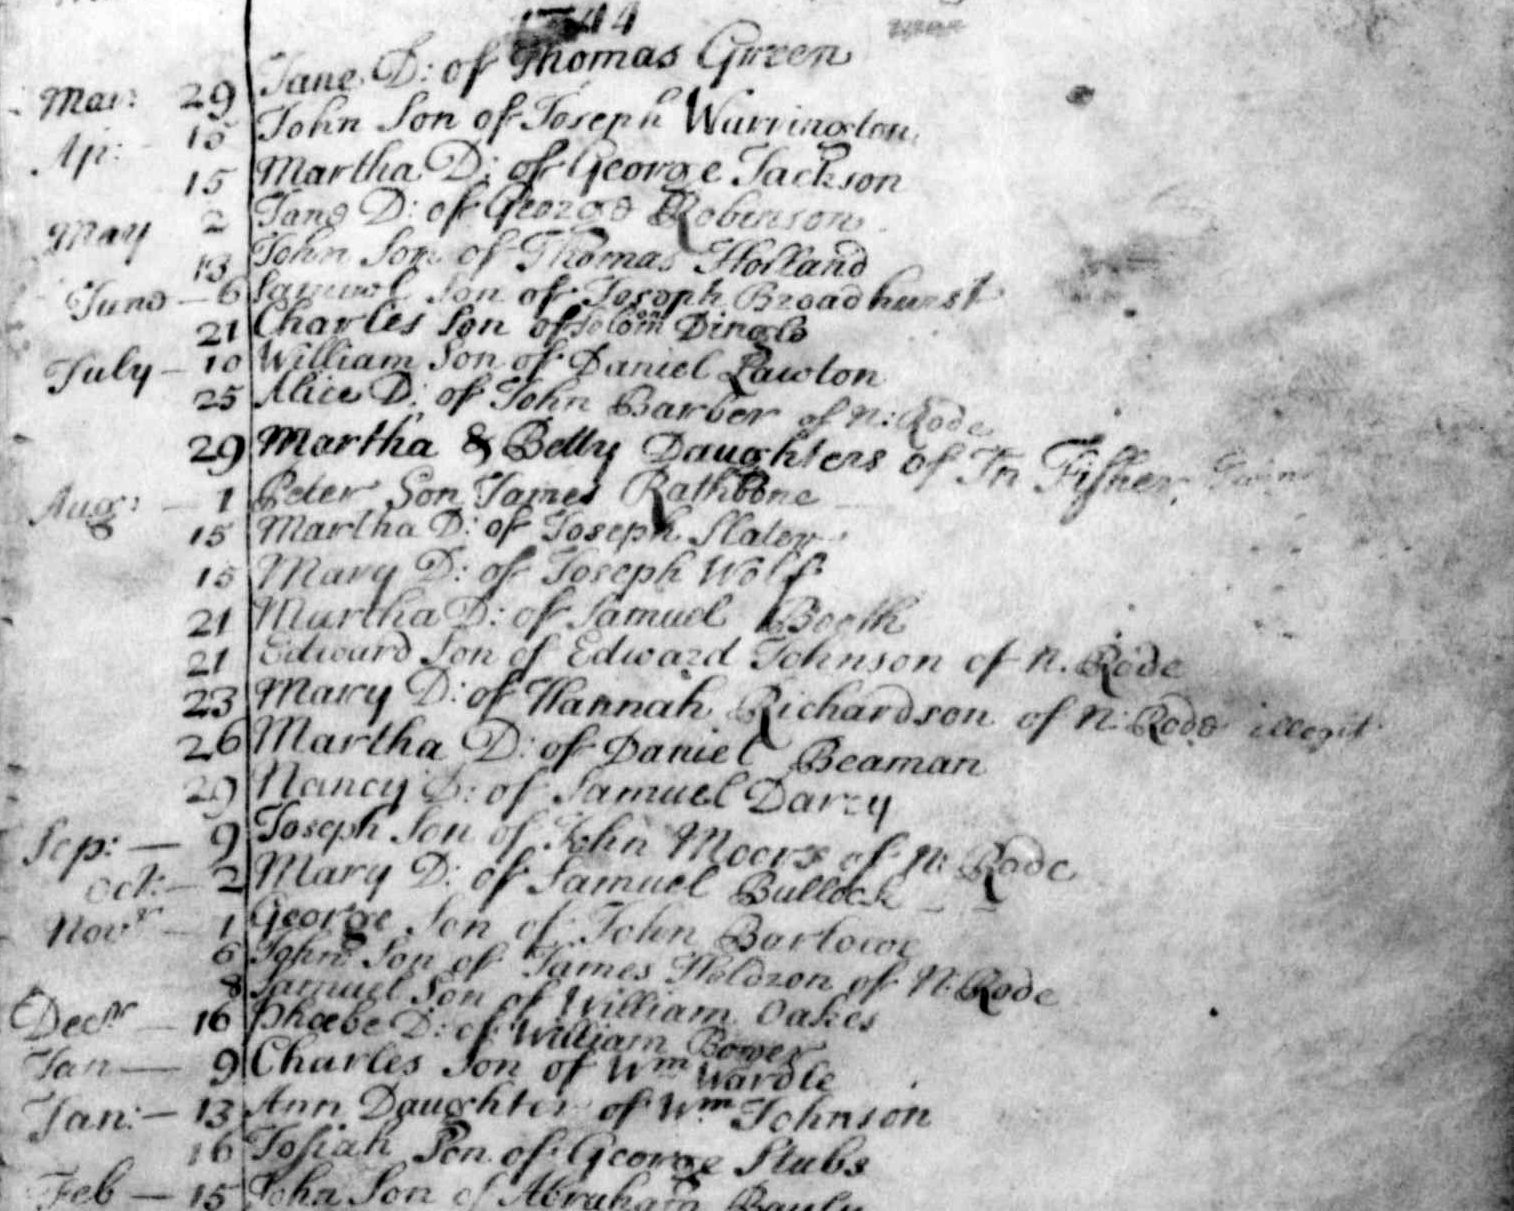 1744
Mar: 29 Jane D: of Thomas Green
Ap: 15 John Son of Joseph Warrington
15 Martha D: of George Jackson
May 2 Jane D: of George Robinson
13 John Son of Thomas Holland
June - 6 Samuel Son of Joseph Broadhurst
21 Charles Son of Solomon Dingle
July - 10 William Son of Daniel Lawton
25 Alice D: of John Barber of N: Rode
29 Martha & Betty Daughters of Jn Fisher,
Aug: - 1 Peter Son James Rathbone
15 Martha D: of Joseph Slater
15 Mary D: of Joseph Wolf
21 Martha D: of Samuel Booth
21 Edward Son of Edward Johnson of N. Rode
23 Mary D: of Hannah Richardson of N: Rode illegit
26 Martha D: of Daniel Beaman
29 Nancy D: of Samuel Darcy
Sep: - 9 Joseph Son of John Moors of N: Rode
Oct: - 2 Mary D: of Samuel Bullock
Novr - 1 George Son of John Barlowe
6 John Son of James of N: Rode
8 Samuel Son of William Oakes
Decr - 16 Phoebe D: of William Bower
Jan - 9 Charles Son of Wm Wardle
Jan: - 13 Ann Daughter of Wm Johnson
16 Josiah Son of George Stubs
Feb - 15 John Son of Abraham